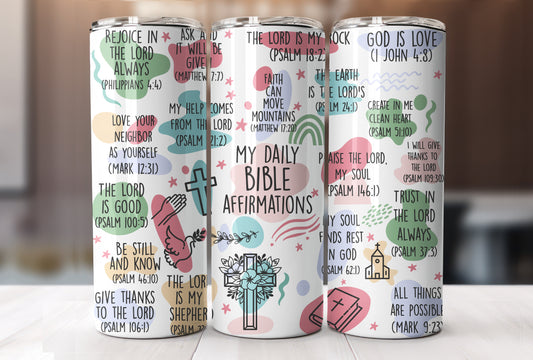 REJOICE IN
THE LORD
ALWAYS
(PHILIPPIANS 4:4)
ASK AND
IT WILL BE
GIVE
(MATTHEW 7:7)
LOVE YOUR
NEIGHBOR
AS YOURSELF
(MARK 12:31)
MY HELP COMES
FROM THE LORD
THE LORD
IS GOOD
(PSALM 100:5)
BE STILL
AND KNOW
(PSALM 46:10)
GIVE THANKS
TO THE LORD
(PSALM 106:1)
THE LORD
IS MY
SHEPHERD
(PSALM
THE LORD IS MY ROCK
(PSALM 18:2)
FAITH
CAN
MOVE
MOUNTAINS
(MATTHEW 17:20)
THE EARTH
IS THE LORD'S
(PSALM 24:1)
MY DAILY
BIBLE
AFFIRMATIONS
PRAISE THE LORD,
MY SOUL
(PSALM 146:1)
MY SOUL
FINDS REST
IN GOD
(PSALM 62:1)
GOD IS LOVE
(1 JOHN 4:8)
CREATE IN ME
CLEAN HEART
(PSALM 51:10)
I WILL GIVE
THANKS TO
THE LORD
(PSALM 109:30)
TRUST IN
THE LORD
ALWAYS
(PSALM 37:3)
ALL THINGS
ARE POSSIBLE
(MARK 9:23)